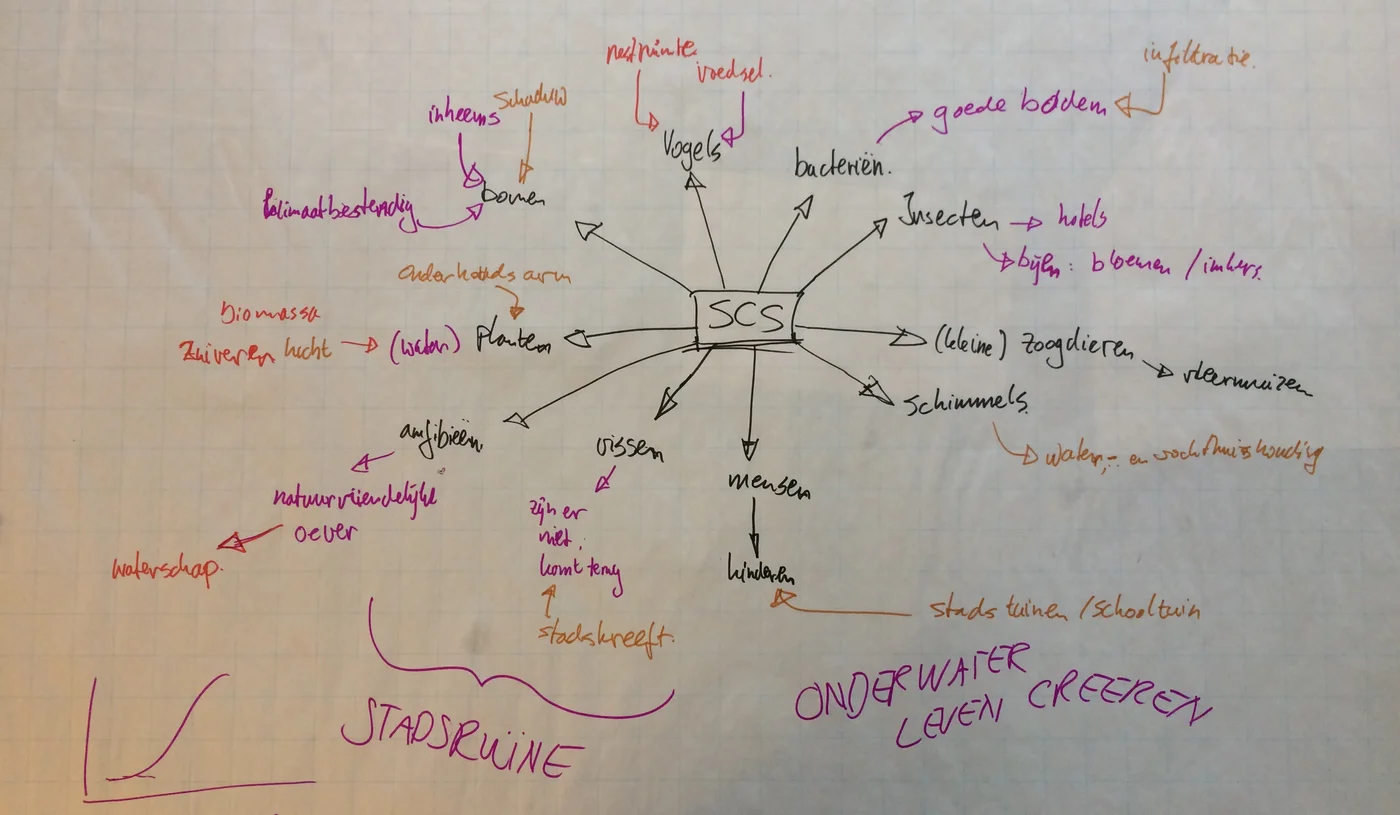 nestruimte
voedsel.
infiltratie.
inheems
schaduw
goede bodem
Vogels
bacteriën.
klimaatbestendig
bomen
Insecten
hotels
bijen: bloemen / imkers.
onderhouds arm
SCS
biomassa
zuiveren lucht
(water) planten
(kleine) zoogdieren
vleermuizen
schimmels.
water,- en vochthuishouding
amfibieën
vissen
mensen
natuurvriendelijke
oever
zijn er
niet,
komt terug
waterschap.
kinderen
stadskreeft.
stads tuinen / schooltuin
STADSRUÏNE
ONDERWATER
LEVEN CREEREN